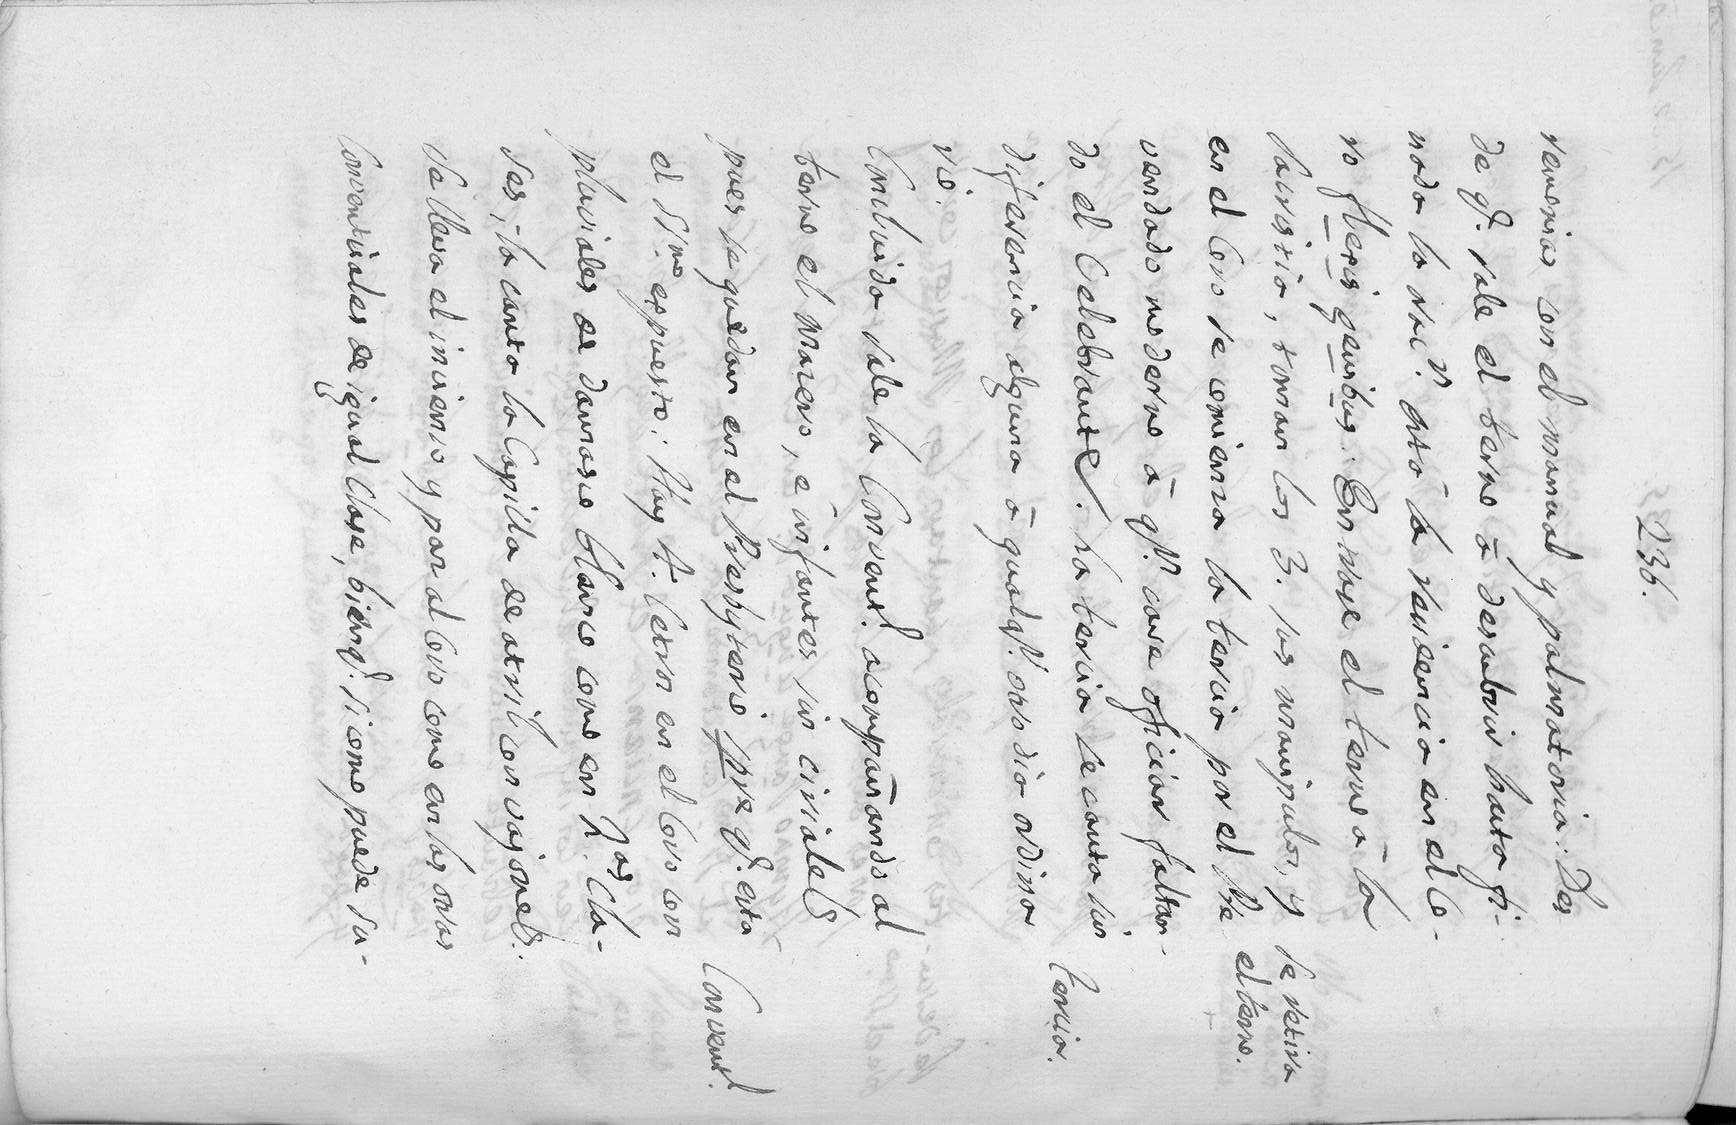 236.
remonias con el manual y palmatoria: Des
de qe. sale el terno â descubrir hasta fi-
nada la
rô la residencia en el Co-
ro flexis genibus: Entrase el terno â la
Sacristia, toman los 3. sus manipulos, y
en el Coro se comienza la tercia por el Pre
vendado moderno â qn. cave oficiar faltan-
do el Celebrante. La tercia se canta sin
diferencia alguna â qualqr. otro dia ordina
rio.
Concluida sale la Convent.l acompañando al
terno el Macero, e infantes sin ciriales
pues se quedan en el Presbyterio pre qe. está
el Smo. expuesto: Hay 4. Cetros en el Coro con
pluviales de damasco blanco como en 2.as Cla-
ses, la canta la Capilla de atril con vajones.
Se lleva el incienso y paz al Coro como en las otras
Conventuales de igual Clase, bien qe. si como puede su-
Se retira
el terno.
Tercia.
Convent.l